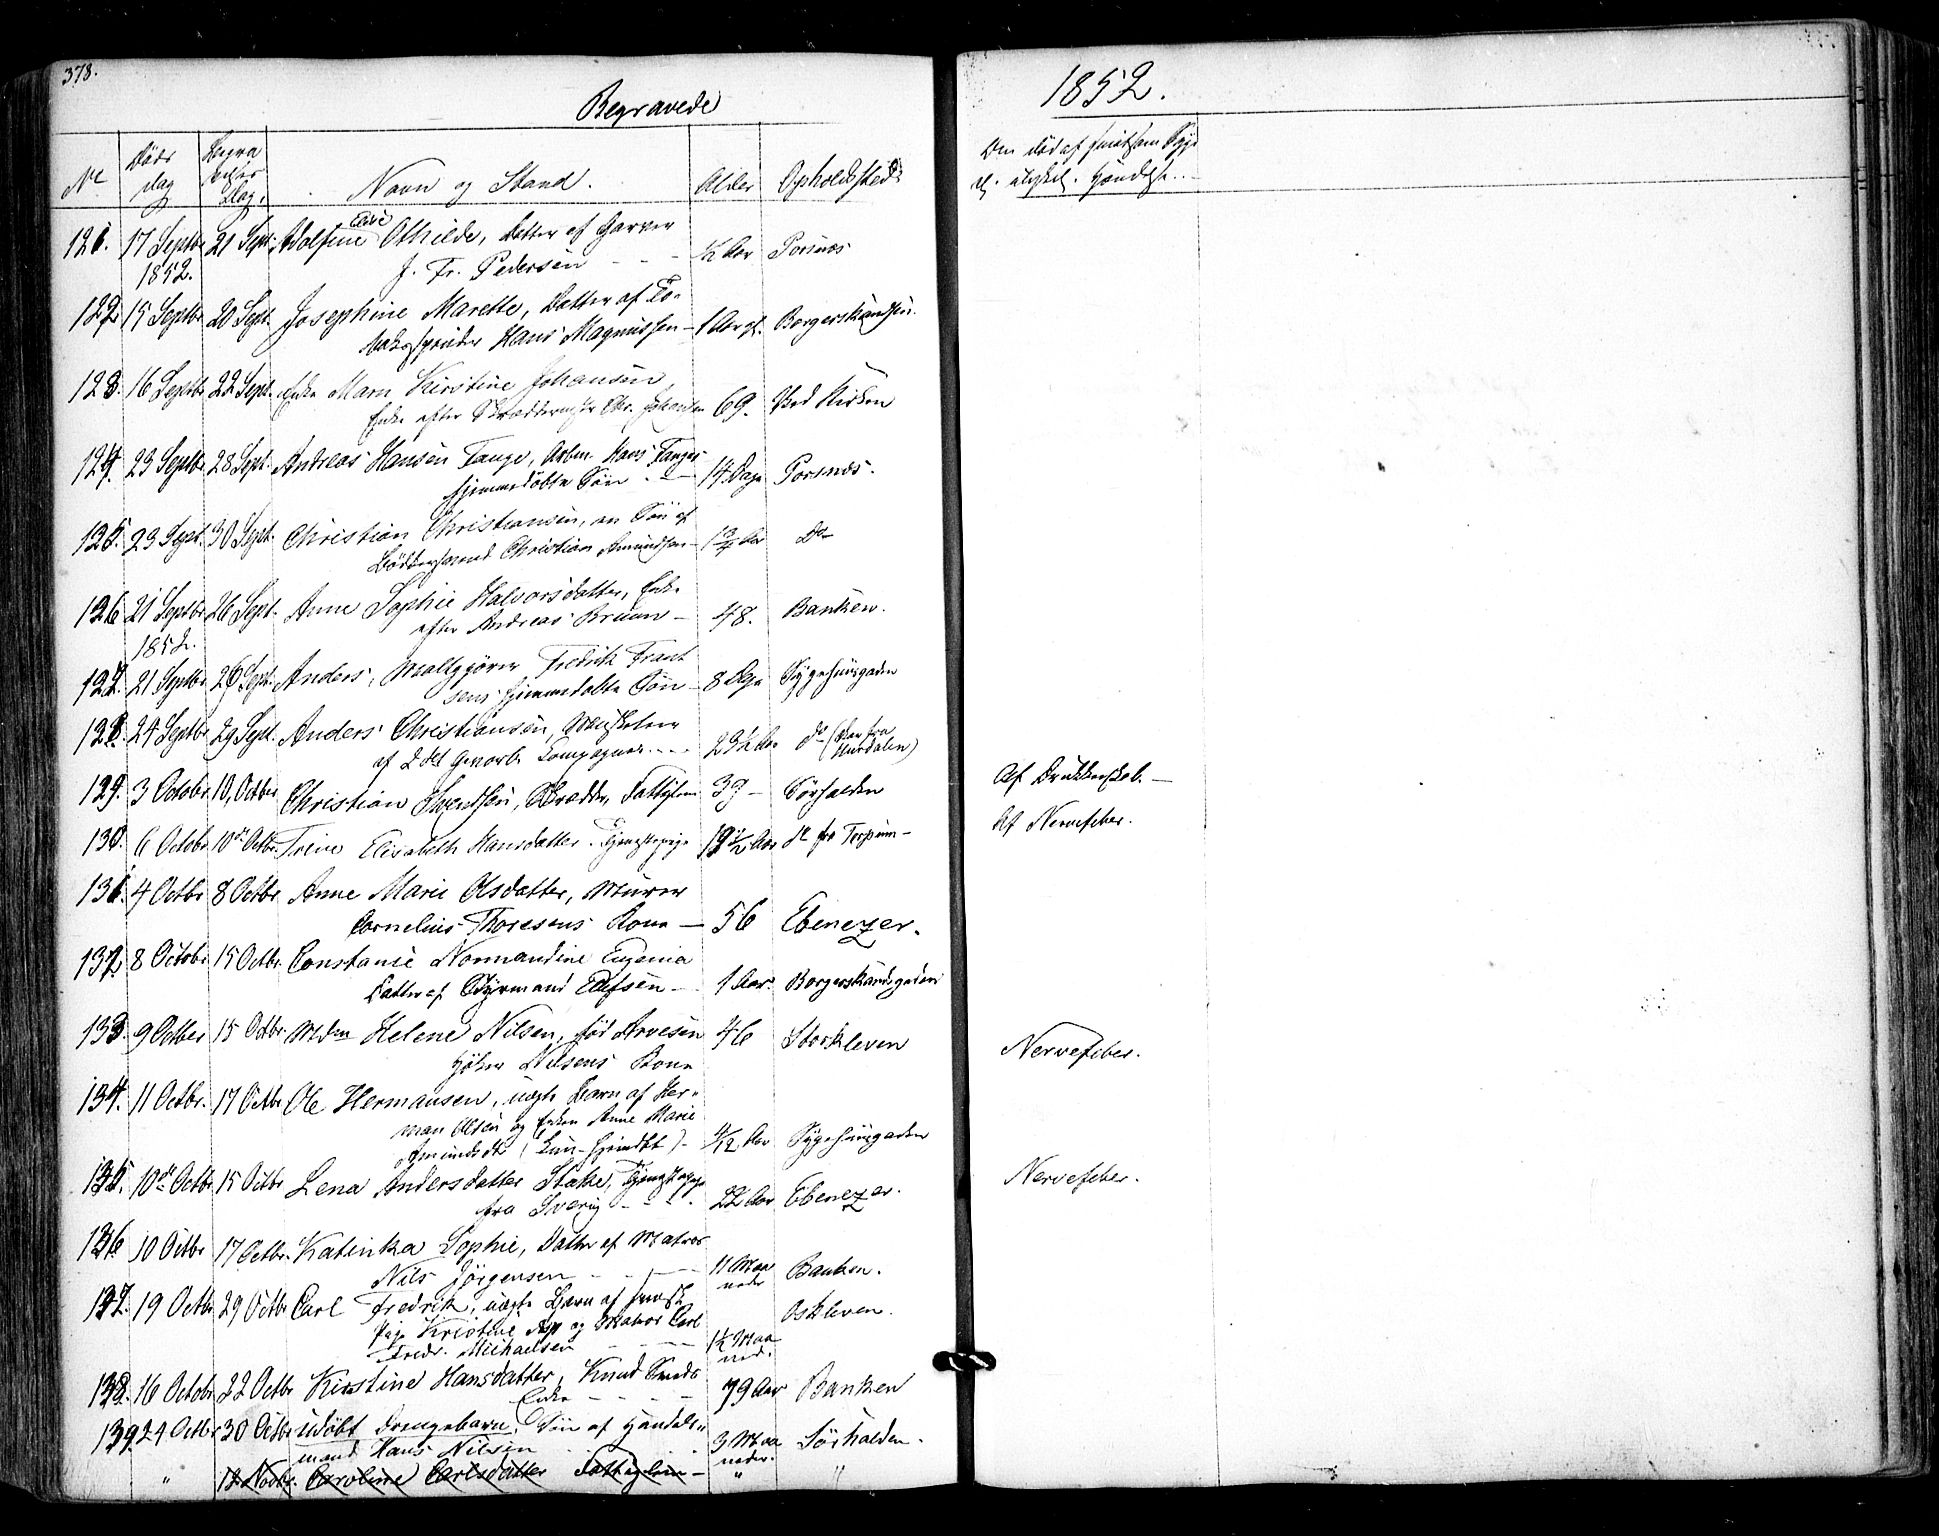 378.
Begravede
1852.
No
Døds dag
Begravelses Dag.
Navn og Stand.
Alder
Opholdssted
Om død af smitsom Syge
el. ulykkel. Hændelse..
121. 17 Septbr 1852. 21 Sept. Adolfine Elise Othilde, Datter af Garver
J. Fr. Pedersen - - - ½ Aar Porsnæs
122. 15 Septbr 20 Sept. Josephine Marette, Datter af To-
baksspinder Hans Magnussen - 1 Aar gl. Borgerskandsen.
123. 16 Septbr 22 Sept. Enke Maren Kirstine Johansen,
Enke efter Skræddermester Chr. Johansen 69. Ved Kirken
124. 23 Septbr 28 Sept. Andreas Hansen Tange, Arbm. Hans Tanges
hjemmedøbte Søn - - 14 Dage Porsnæs.
125. 23 Sept. 30 Sept. Christian Christiansen, en Søn af
Bøddersvend Christian Amundsen - 1¾ Aar Do
126 21 Septbr 1852. 26 Sept. Anne Sophie Halvorsdatter, Enke
efter Andreas Bruun - 48. Banken.
127. 21 Septbr 26 Sept. Anders, Maltgjører Fredrik Frant
sens hjemmedøbte Søn - 8 Dage Sygehuusgaden
128. 24 Septbr 29 Sept. Anders Christiansen,
af 2det Compagnie.... 23½ Aar do (Var fra
Hurdalen)
129. 3 October 10, Octber Christian Svendsen, Skrædder, Fattiglem 39 - Sørhalden
Af Drukkenskab. -
130. 6 Octobr 10de Octbr. Trine Elisabeth Hansdatter. Tjenestepige 19½ Aar do fra Torpum -
Af Nervefeber.
131. 4 Octbr 8 Octbr Anne Marie Olsdatter, Murer
Cornelius Thoresens Kone - 56 Ebenezer.
132, 8 Octobr 15 Octbr. Constance Normandine Eugenia
Datter af Styrmand Ellefsen - 1 Aar. Borgerskandsgaden
133. 9 Octber 15 Octbr. Mdm Helene Nilsen, fød Arvesen 46 Storkleven
Høker Nilsens Kone
Nervefeber.
134. 11 Octbr. 17 Octbr Ole Hermansen, uægte Barn af Her-
man Olsen og Enken Anne Marie
Amundsdr (kun hjemdøbt) - 4/12 Aar Sygehuusgaden
135. 10de Octbr 15 Octbr Lena Andersdatter Stake, Tjenestepige
fra Sverig - - - . 22 Aar Ebenezer.
Nervefeber.
136 10 Octbr 17 Octbr. Katinka Sophie, Datter af Matros
Nils Jörgensen - - - 11 Maaneder Banken.
137. 19 Octbr 29 Octbr Carl Fredrik, uægte Barn af
Pige Kristine Asp og Matros Carl
Fredr. Michaelsen - - - 1½ Maaned. Oskleven.
138. 16 Octobr 22 Octbr Kirstine Hansdatter, Knud Smeds
Enke - - - 79 Aar Banken
139. 24 Octbr 30 Octbr udøbt Drengebarn, Søn af Handels-
mand Hans Nilsen 3 Maaneder. Sørhalden.
" 12 Novbr. Caroline Carlsdatter Fattiglem - " "